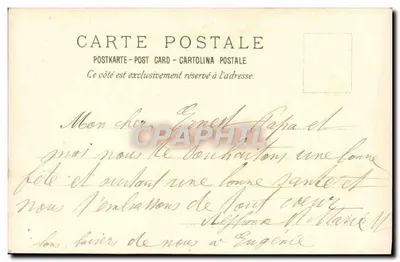 CARTE POSTALE
POSTKARTE - POST CARD - CARTOLINA POSTALE
Ce côté est exclusivement réservé à l'adresse.
Mon cher Ernest Papa et
CPAPHIL
moi nous te souhaitons une bonne
fête et surtout une bonne santé et
nous t'embrassons de tout coeur
Marie
bons baisers de nous a Eugénie